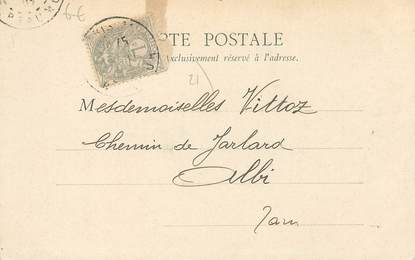 6-6
TE POSTALE
exclusivement réservé à l'adresse.
21
Mesdemoiselles Vittoz
Chemin de Jarlard
Albi
Tarn